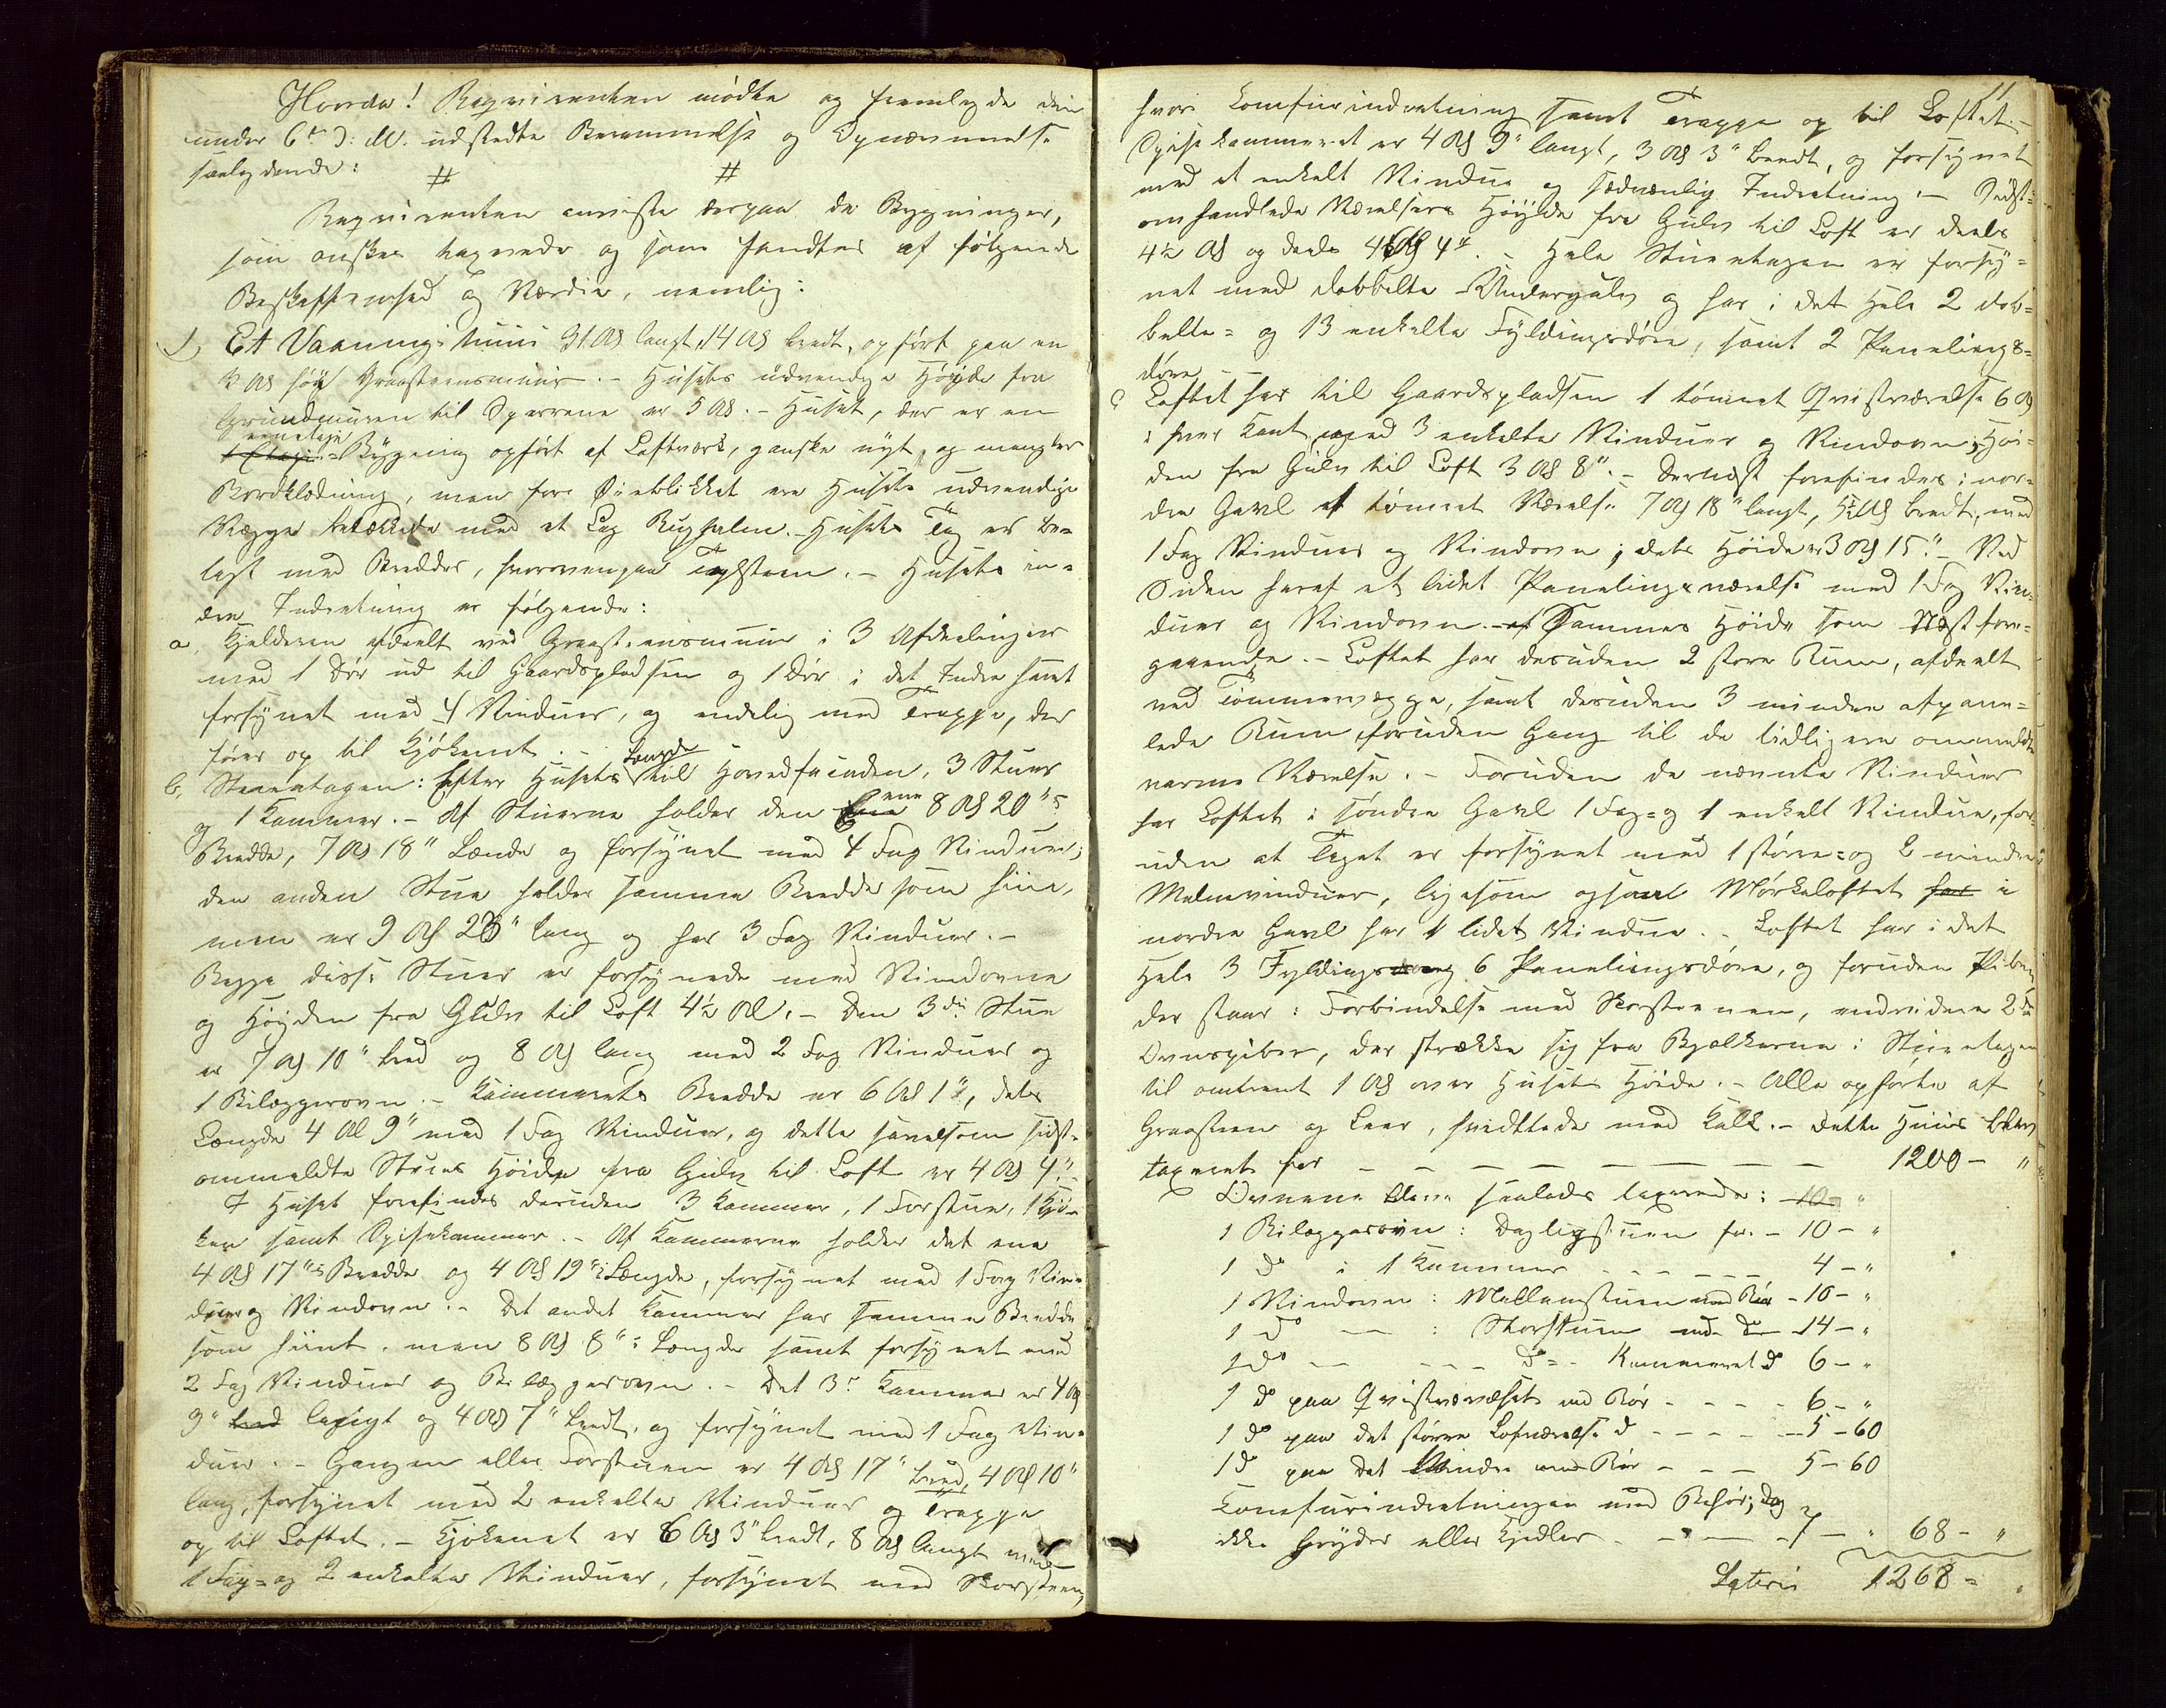 Hvorda! Reqvirenten mødte og fremlagde den
under 6te D: M. udstedte Berammelse og Opnævnelse
saalydende:
# #
Reqvirenten anviste derpaa de Bygninger,
som ønskes taxerede og som fandtes af følgende
Beskaffenhed og Værdie, nemlig:
1, Et Vaaningshuus 31 Al langt, 14 Al bredt, opført paa en
3 Al høy Graasteensmuur. - Husets udvendige Høyde fra
Grundmuren til Sperrene er 5 Al. - Huset, der er en
eenetages
1 Etages Bygning opført af Laftværk, ganske nyt, og mangler
Bordklædning, men for Øieblikket ere Husets udvendige
Vægge betækkede med et Lag Rughalm. - Husets Tag er be-
lagt med Bredder, hvorovenpaa Taglsteen. - Husets in-
dre Indretning er følgende:
a, Kjelderen afdeelt ved Graasteensmuur i 3 Afdeelinger
med 1 Dør ud til Gaardspladsen og 1 Dør i det Indre samt
forsynet med 4 Vinduer, og endelig med Trappe, der
fører op til Kjøkenet. -
b, Stueetagen: Efter Husets Længde til Hovedfacaden, 3 Stuer
og 1 Kammer. - Af Stuerne holder den ene 8 Al 20"s
Bredde, 7 Al 18" Længde og forsynet med 4 Fag Vinduer;
den anden Stue holder samme Bredde som hiin,
men er 9 Al 23" lang og har 3 Fag Vinduer. -
Begge disse Stuer er forsynede med Vindovne
og Høyden fra Gulv til Loft 4½ Al. - Den 3die Stue
er 7 Al 10" bred og 8 Al lang med 2 Fag Vinduer og
1 Bilæggerovn. - Kammerets Bredde er 6 Al 1", dets
Længde 4 Al 9" med 1 Fag Vinduer, og dette saavelsom sidst-
ommeldte Stues Høide fra Gulv til Loft er 4 Al 4". -
I Huset forefindes desuden 3 Kammer, 1 Forstue, 1 Kjø-
ken samt Spisekammer. - Af Kammerne holder det ene
4 Al 17"s Bredde og 4 Al 19"s Længde, forsynet med 1 Fag Vin-
duer og Vindovn. - Det andet Kammer har samme Bredde
som hiint, men 8 Al 8"s Længde samt forsynet med
2 Fag Vinduer og Bilæggerovn. - Det 3die Kammer er 4 Al
9" bred langt og 4 Al 7" bredt, og forsynet med 1 Fag Vin-
duer. - Gangen eller Forstuen er 4 Al 17" bred, 4 Al 10"
lang, forsynet med 2 enkelte Vinduer og Trappe
op til Loftet. - Kjøkenet er 6 Al 3" bredt, 8 Al langt med
1 Fag- og 2 enkelte Vinduer, forsynet med Skorsteen,
11
hvori Comfurindretning samt Trappe op til Loftet. -
Spisekammeret er 4 Al 9" langt, 3 Al 3" bredt, og forsynet
med et enkelt Vindue og sædvanlig Indretning. - Sidst-
omhandlede Værelsers Høyde fra Gulv til Loft er deels
4½ Al og deels 4 Al 4". - Hele Stueetagen er forsy-
net med dobbelte Undergulv og har i det Hele 2 dob-
belte- og 13 enkelte Fyldingsdøre, samt 2 Panelings-
døre. -
c, Loftet har til Gaardspladsen 1 tømret Qvistværelse 6 Al
i hver Kant med 3 enkelte Vinduer og Vindovn; Høi-
den fra Gulv til Loft 3 Al 8". - Dernæst forefindes i nor-
dre Gavl et tømret Værelse 7 Al 18" langt, 5½ Al bredt, med
1 Fag Vinduer og Vindovn; dets Høide er 3 Al 15". - Ved
Siden heraf et lidet Panelingsværelse med 1 Fag Vin-
duer og Vindovn. - af Sammes Høide som Næstfore-
gaaende. - Loftet har desuden 2 store Rum, afdeelt
ved Tømmervægge, samt desuden 3 mindre afpane-
lede Rum, foruden Gang til de tidligere ommeldte
varme Værelser. - Foruden de nævnte Vinduer
har Loftet i søndre Gavl 1 Fag- og 1 enkelt Vindue, for-
uden at Taget er forsynet med 1 større- og 2 mindre
Malmvinduer, ligesom ogsaa Mørkeloftet har i
nordre Gavl har 1 lidet Vindue. - Loftet har i det
Hele 3 Fyldings- og 6 Panelingsdøre, og foruden Piben,
der staar i Forbindelse med Skorstenen, endvidere 2de
Ovnspiber, der strække sig fra Bjælkerne i Stueetagen
til omtrent 1 Al over Husets Høide. - Alle opførte af
Graasteen og Leer, hvidttede med Kalk. - Dette Huus blev
taxeret for - - - - - - - - 1200 - "
Ovnene bleve saaledes taxerede: 10 - "
1 Bilæggerovn i Dagligstuen for - 10 - "
1 do i 1 Kammer - - - - - 4 - "
1 Vindovn i Mellemstuen med Rør - 10 - "
1 do — i Storstuen med do - 14 - "
1 do — - - - do - - Kammeret do 6 - "
1 do paa Qvistværelset med Rør - - - - 6 - "
1 do paa det større Loftværelse do - - - - 5 - 60
1 do paa det Mindre med Rør - - - 5 - 60
Comfurindretningen med Behør, dog
ikke Gryder eller Kjedler - - - - 7 - " 68 - "
Lateris 1268 - "